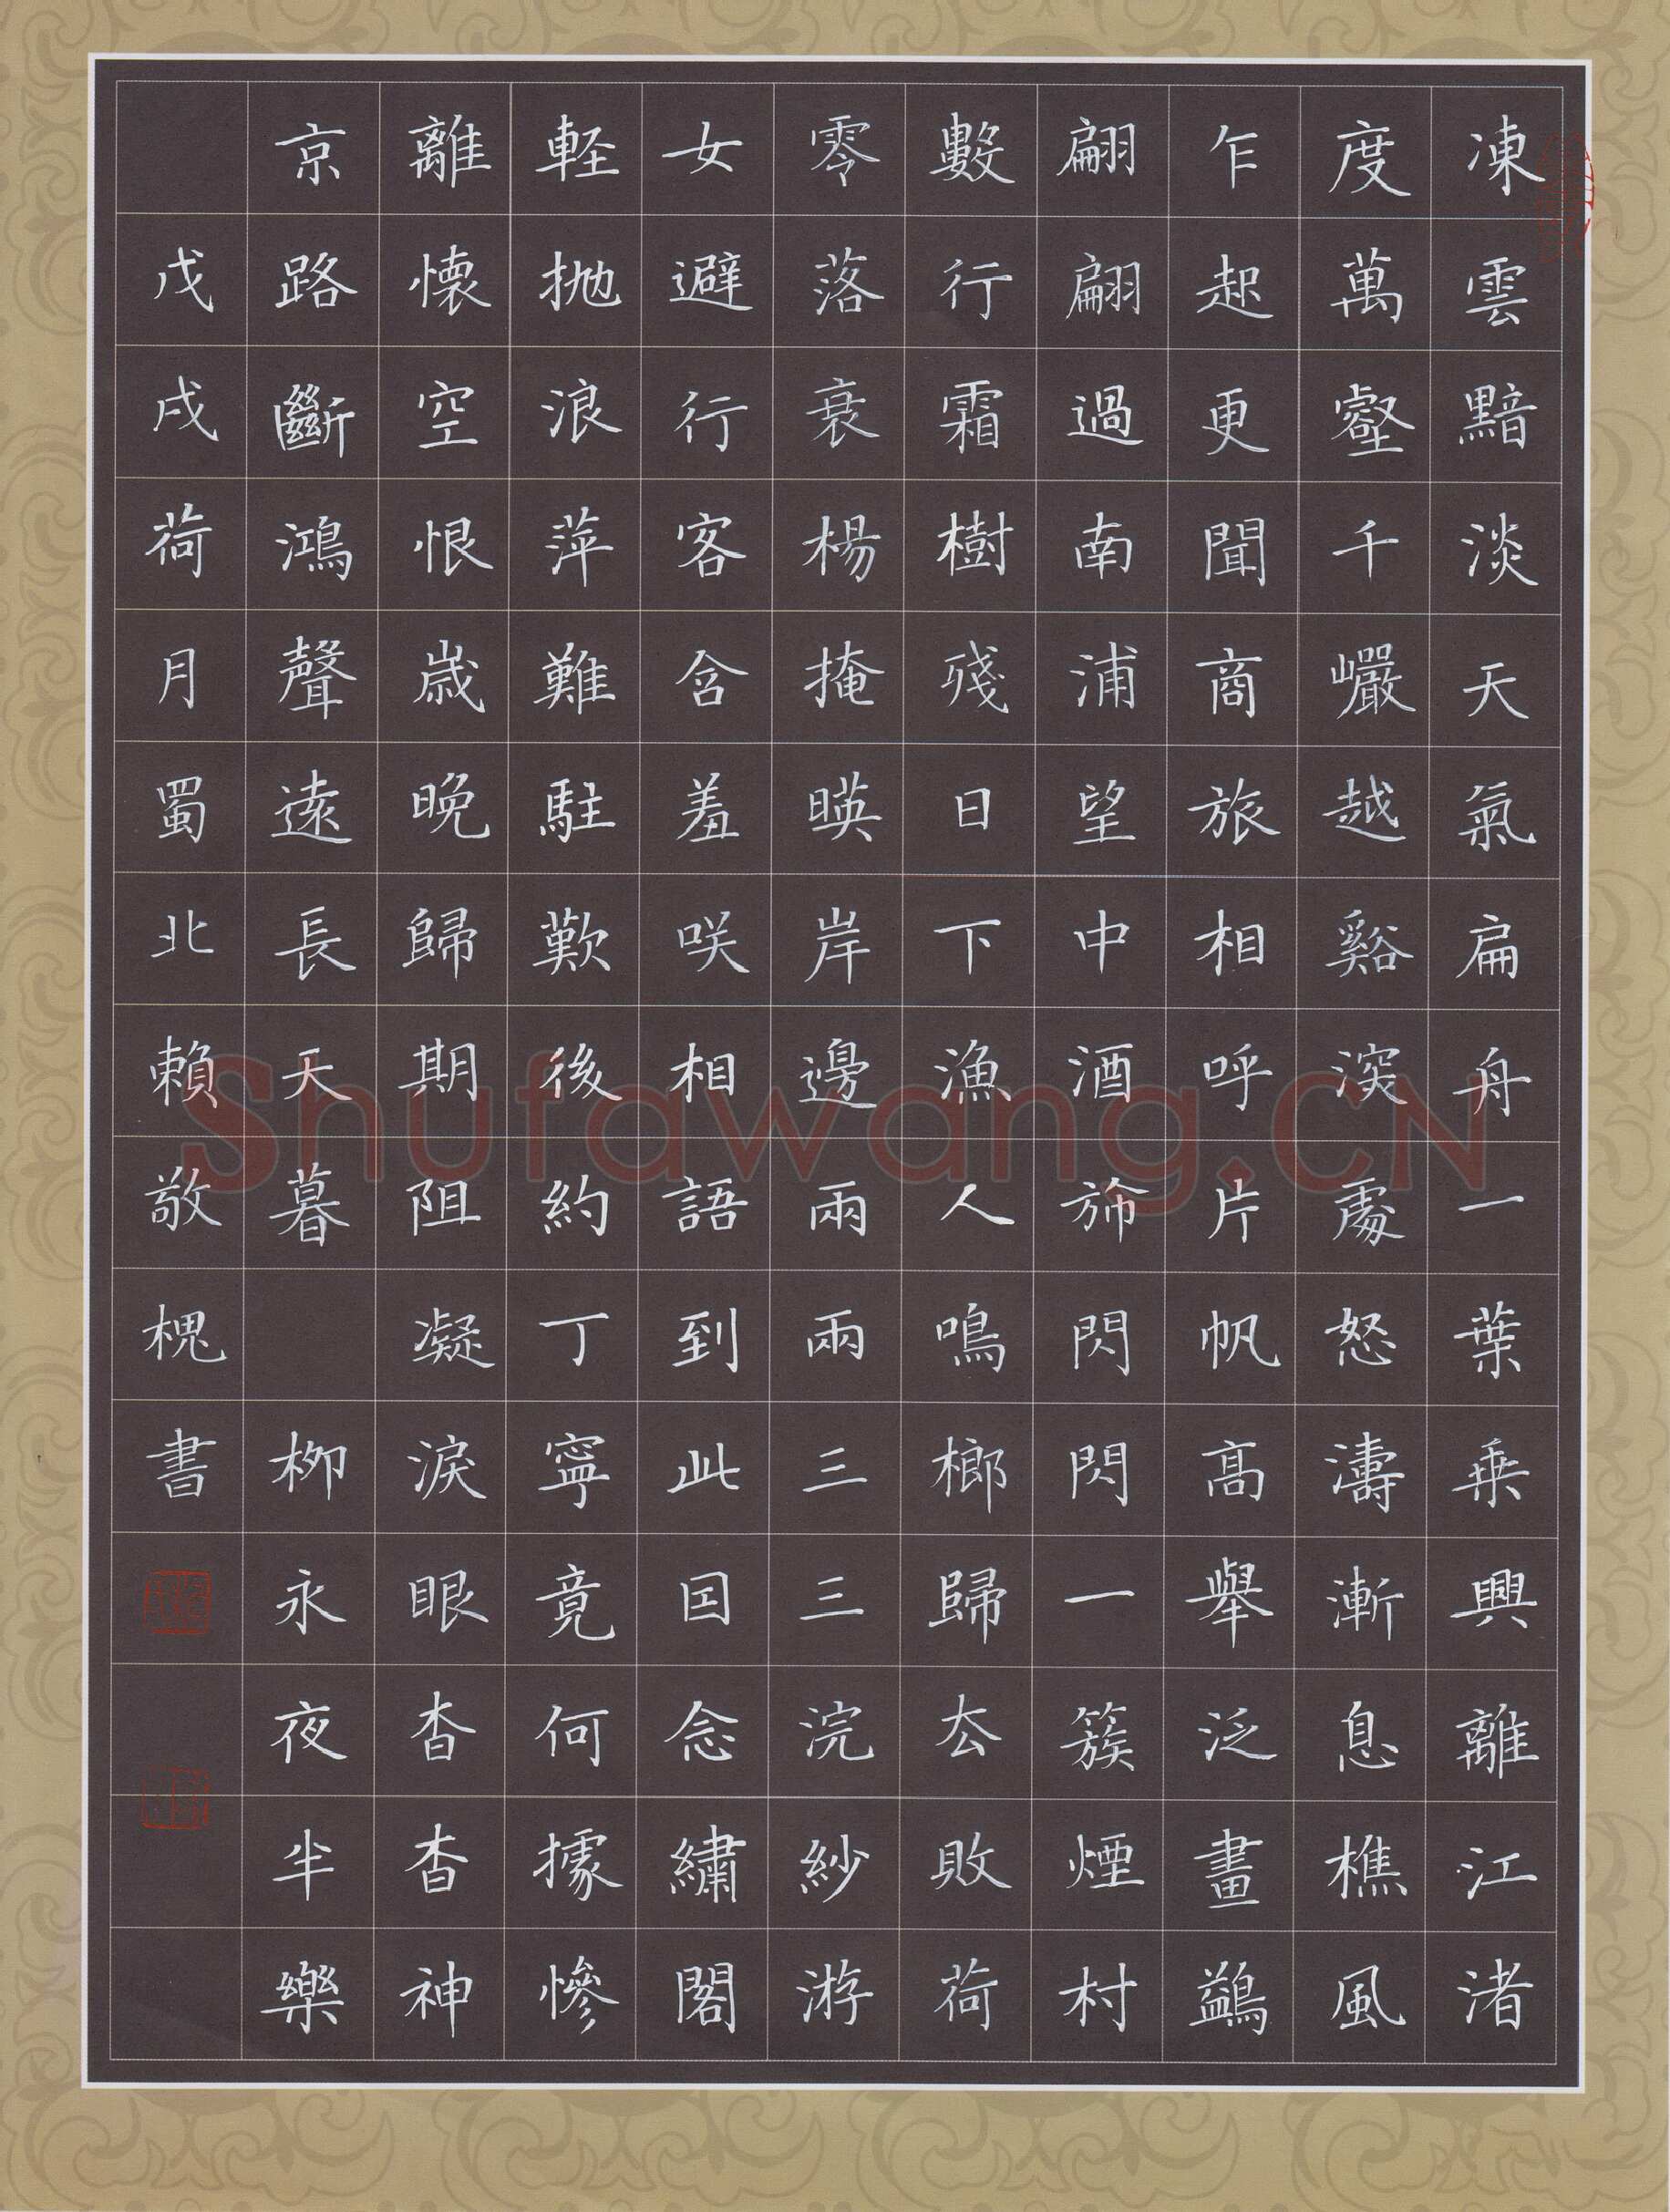 凍雲黯淡天氣扁舟一葉乗興離江渚
度萬壑千巖越谿深處怒濤漸息樵風
乍起更聞商旅相呼片帆高舉泛畫鷁
翩翩過南浦望中酒斾閃閃一簇煙村
數行霜樹殘日下漁人鳴榔歸去敗荷
零落衰楊掩暎岸邊兩兩三三浣紗游
女避行客含羞咲相語到此因念繡閣
軽拋浪萍難駐歎後約丁寧竟何據慘
離懷空恨歲晚歸期阻凝淚眼杳杳神
京路斷鴻聲遠長天暮 柳永夜半樂
戊戌荷月蜀北賴敬槐書
Shufawang.CN